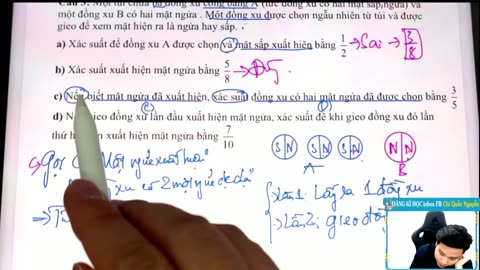 một đồng xu B có hai mặt ngửa. Một đồng xu được chọn ngẫu nhiên từ túi và được
gieo để xem mặt hiện ra là ngửa hay sấp.
a) Xác suất để đồng xu A được chọn và mặt sấp xuất hiện bằng 1/2 → Sai → 3/8
b) Xác suất xuất hiện mặt ngửa bằng 5/8 →
c) Nếu biết mặt ngửa đã xuất hiện, xác suất đồng xu có hai mặt ngửa đã được chọn bằng 3/5
d) gieo đồng xu lần đầu xuất hiện mặt ngửa, xác suất để khi gieo đồng xu đó lần
thứ xuất hiện mặt ngửa bằng 7/10
Gọi C: "Mặt ngửa xuất hiện"
xu có 2 mặt ngửa
S N S N S N N N
A B
Lần 1: Lấy ra 1 đồng xu
Lần 2: gieo
ĐĂNG KÍ HỌC inbox FB Chí Quốc Nguyễn